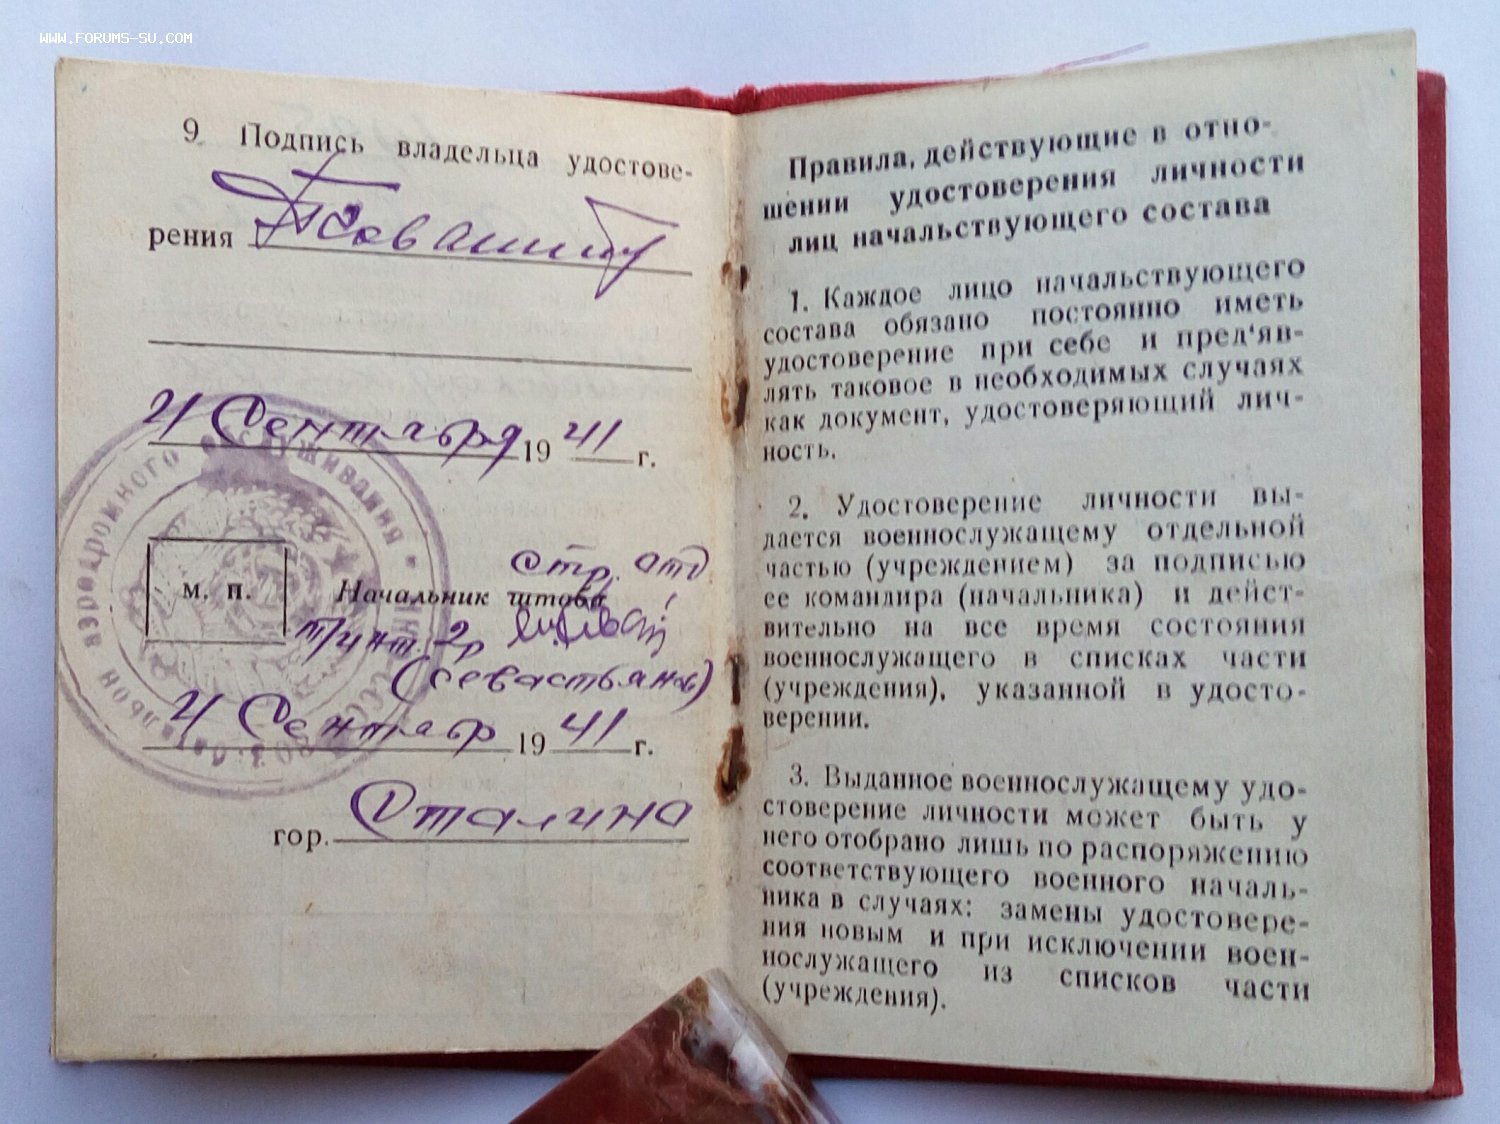 WWW.FORUMS-SU.COM
9 Подпись владельца удостове-
рения
4 Сентября 19 41 г.
аэродромного обслуживания
м. п.
Начальник штаба
стр. отд.
т/инт. 2р
(Севастьянов)
4 Сентябр 19 41 г.
гор. Сталино
Правила, действующие в отно-
шении удостоверения личности
лиц начальствующего состава
1. Каждое лицо начальствующего
состава обязано постоянно иметь
удостоверение при себе и пред'яв-
лять таковое в необходимых случаях
как документ, удостоверяющий лич-
ность.
2. Удостоверение личности вы-
дается военнослужащему отдельной
частью (учреждением) за подписью
ее командира (начальника) и дейст-
вительно на все время состояния
военнослужащего в списках части
(учреждения), указанной в удосто-
верении.
3. Выданное военнослужащему удо-
стоверение личности может быть у
него отобрано лишь по распоряжению
соответствующего военного началь-
ника в случаях: замены удостовере-
ния новым и при исключении воен-
нослужащего из списков части
(учреждения).